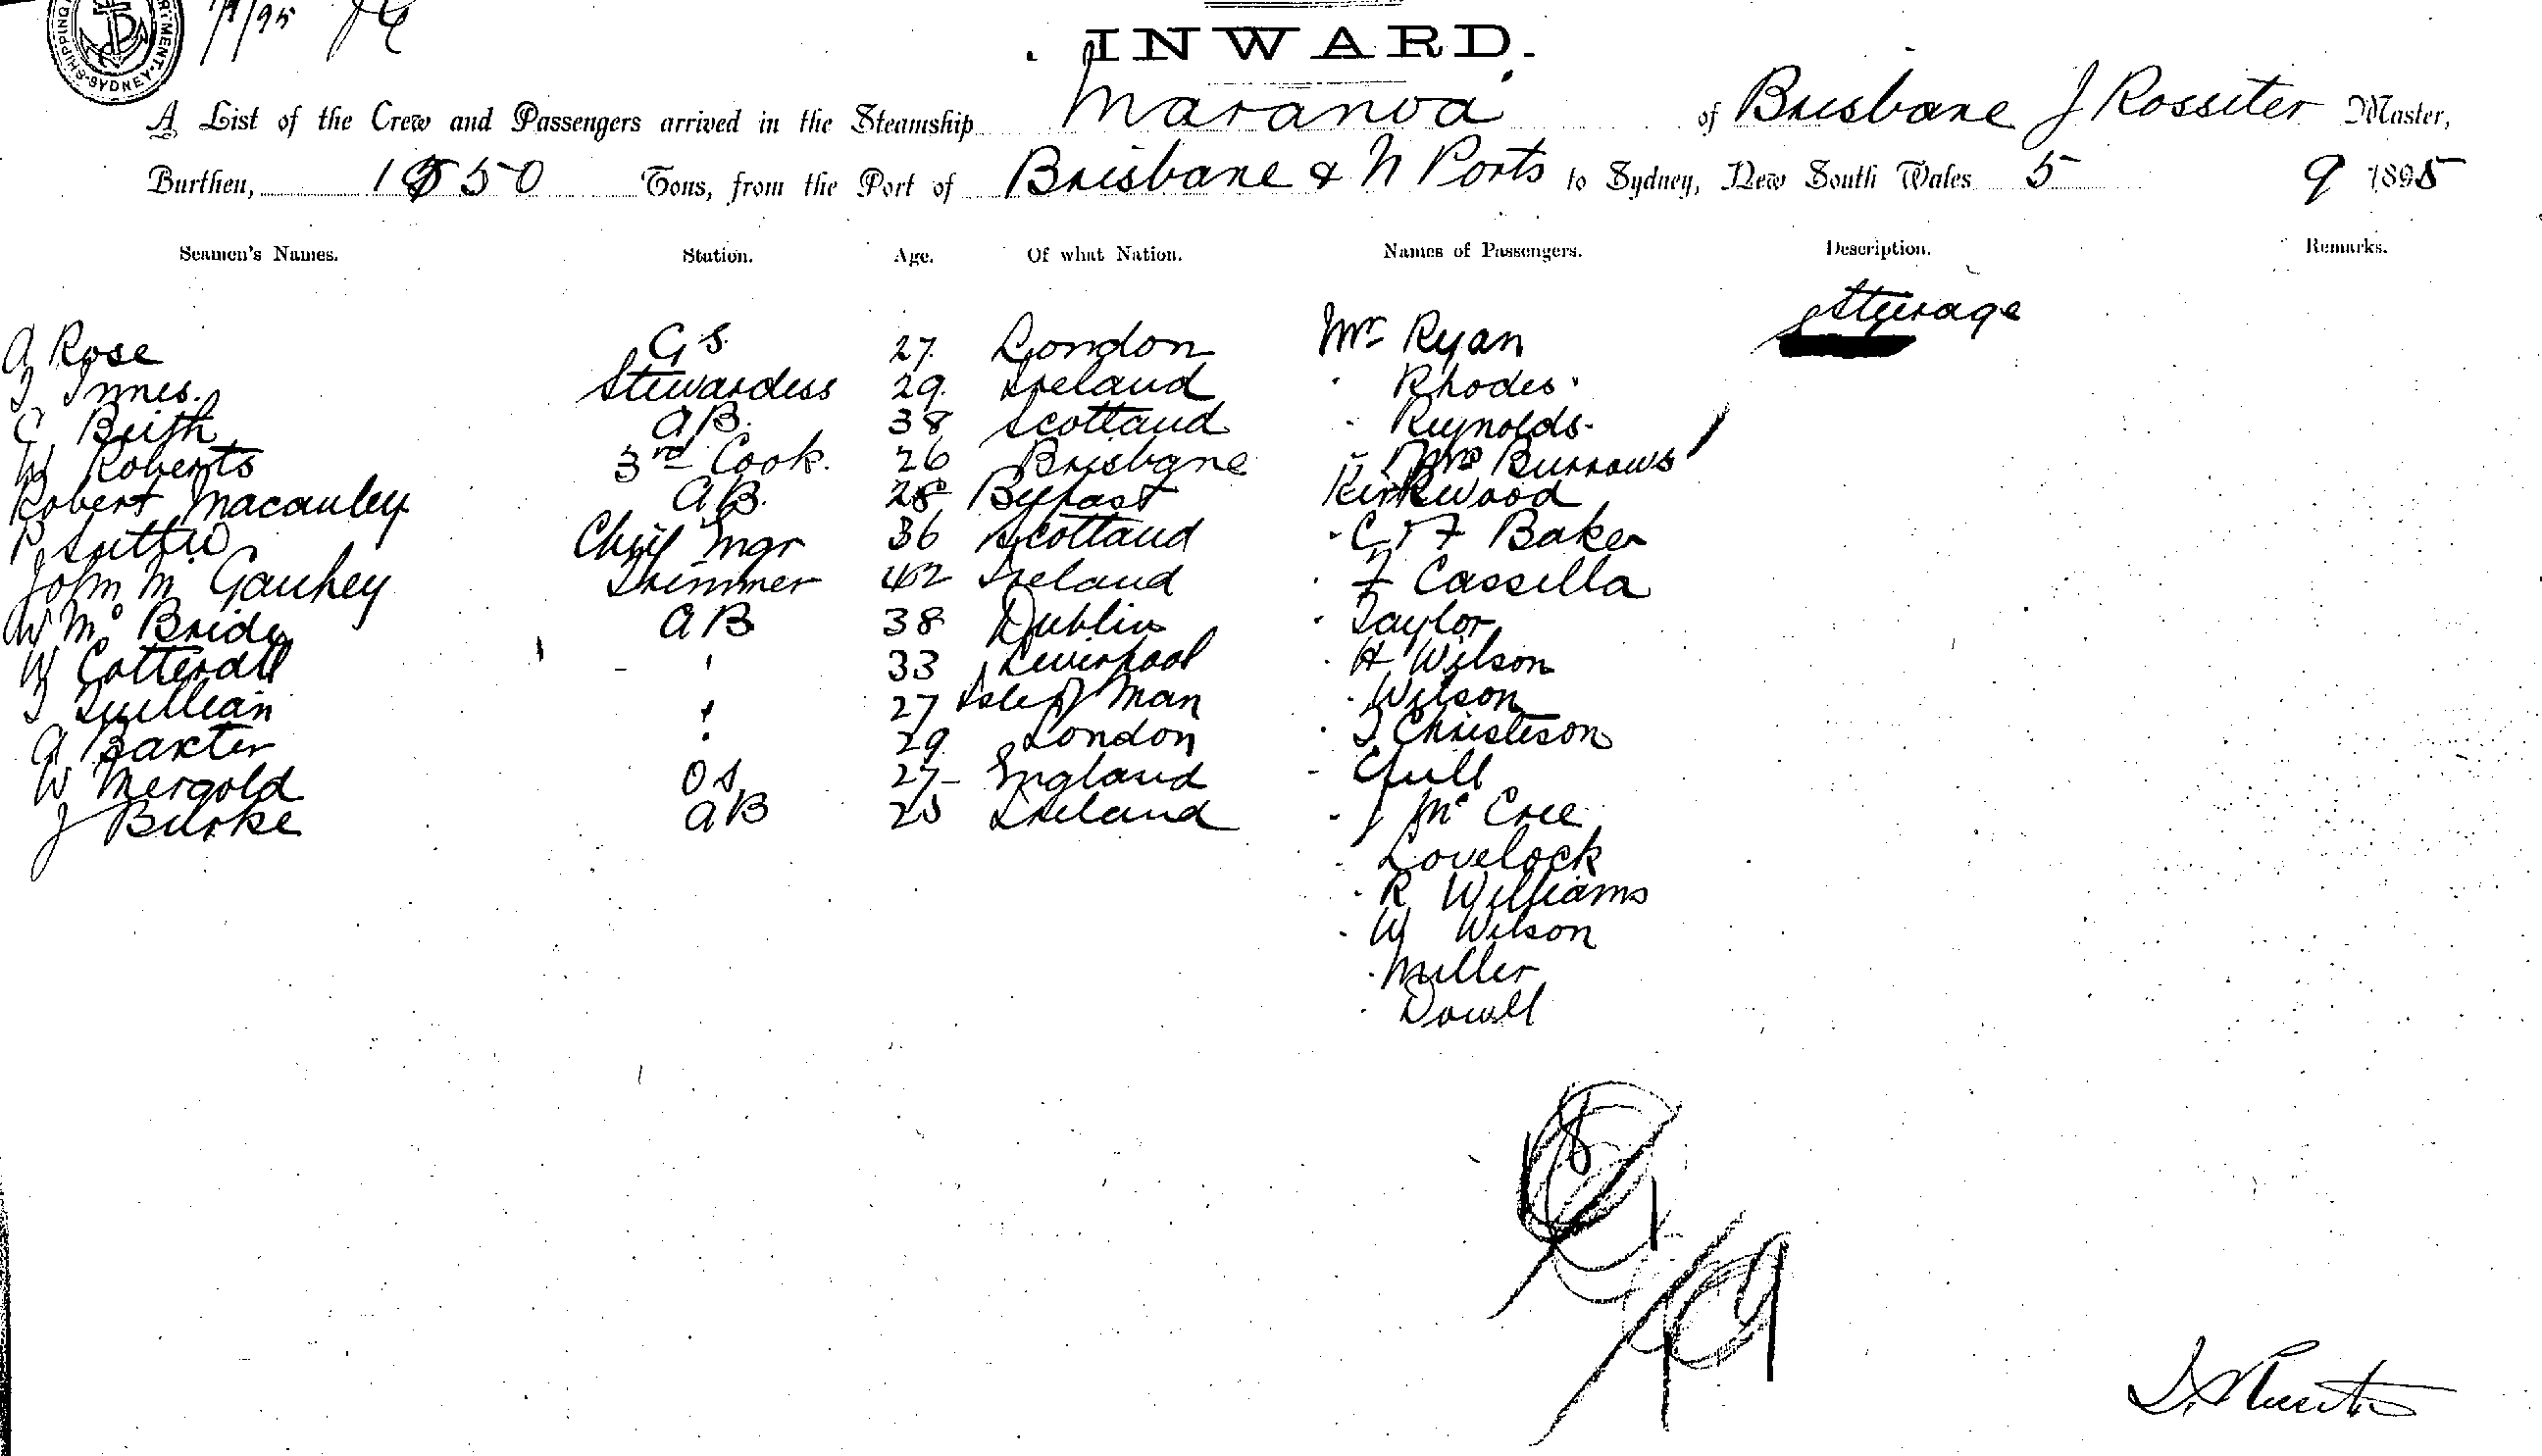 SHIPPING
SYDNEY
INWARD.
A List of the Crew and Passengers arrived in the Steamship Maranoa of Brisbane J Rossiter Master,
Burthen, Tons, from the Port of Brisbane & N Ports to Sydney, New South Wales 5 9 1895
Seamen's Names. Station. Age. Of what Nation. Names of Passengers. Description. Remarks.
Steerage
A Rose G S. 27. London Mr Ryan
Innes. Stewardess 29. Ireland Rhodes
C Beith A B. 38 Scotland Reynolds
W Roberts 3rd Cook. 26 Brisbane Mrs Burrows
Robert Macauley A B. 28 Belfast Kirkwood
P Suttie Chief 36 Scotland C Baker
John M Gauhey Trimmer 42 Ireland F Cassilla
W Mc Bride A B 38 Dublin Taylor
W Cotterall 33 Liverpool H Wilson
27 Isle of Man Wilson
A Baxter 29 London Christeson
W Mergold O S 27 England
J Burke A B Ireland J Mc Cree
Lovelock
R Williams
W Wilson
Miller
Dowell